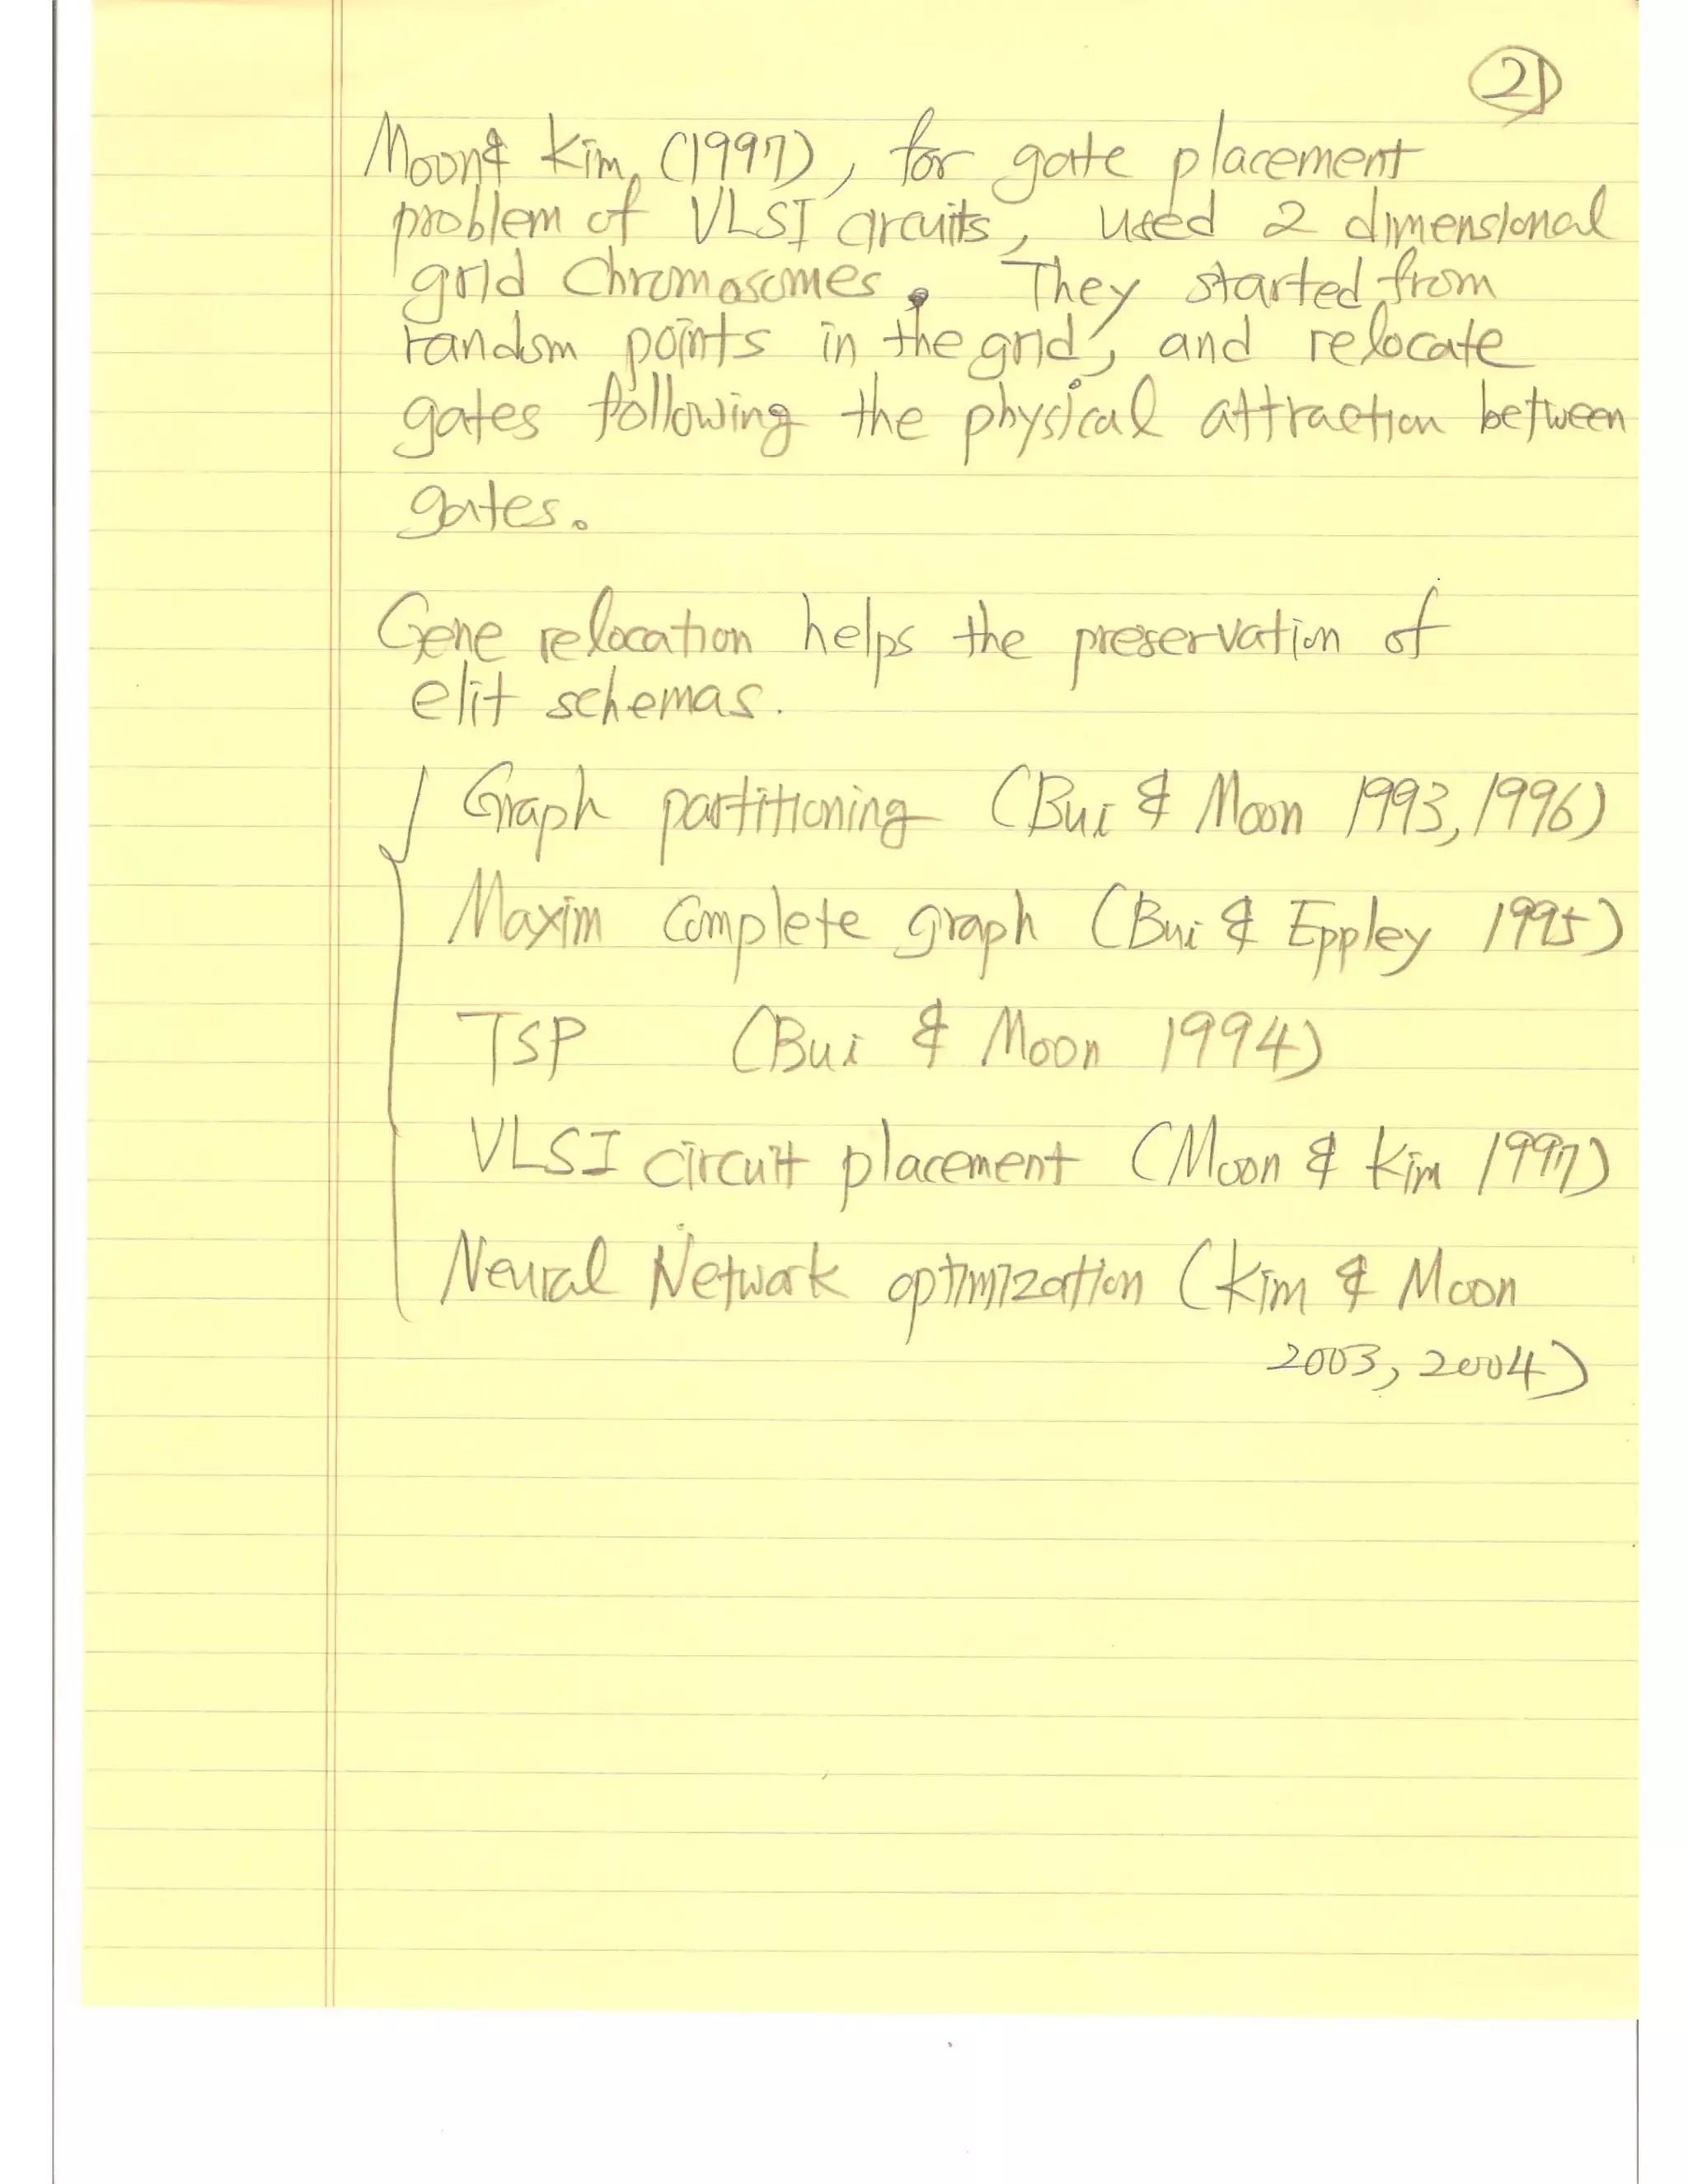 21
Moon & Kim (1997), for gate placement
problem of VLSI circuits, used 2 dimensional
grid chromosomes. They started from
random points in the grid, and relocate
gates following the physical attraction between
gates.
Gene relocation helps the preservation of
elit schemas.
Graph partitioning (Bui & Moon 1993, 1996)
Maxim complete graph (Bui & Eppley 1995)
TSP (Bui & Moon 1994)
VLSI circuit placement (Moon & Kim 1997)
Neural Network optimization (Kim & Moon
2003, 2004)